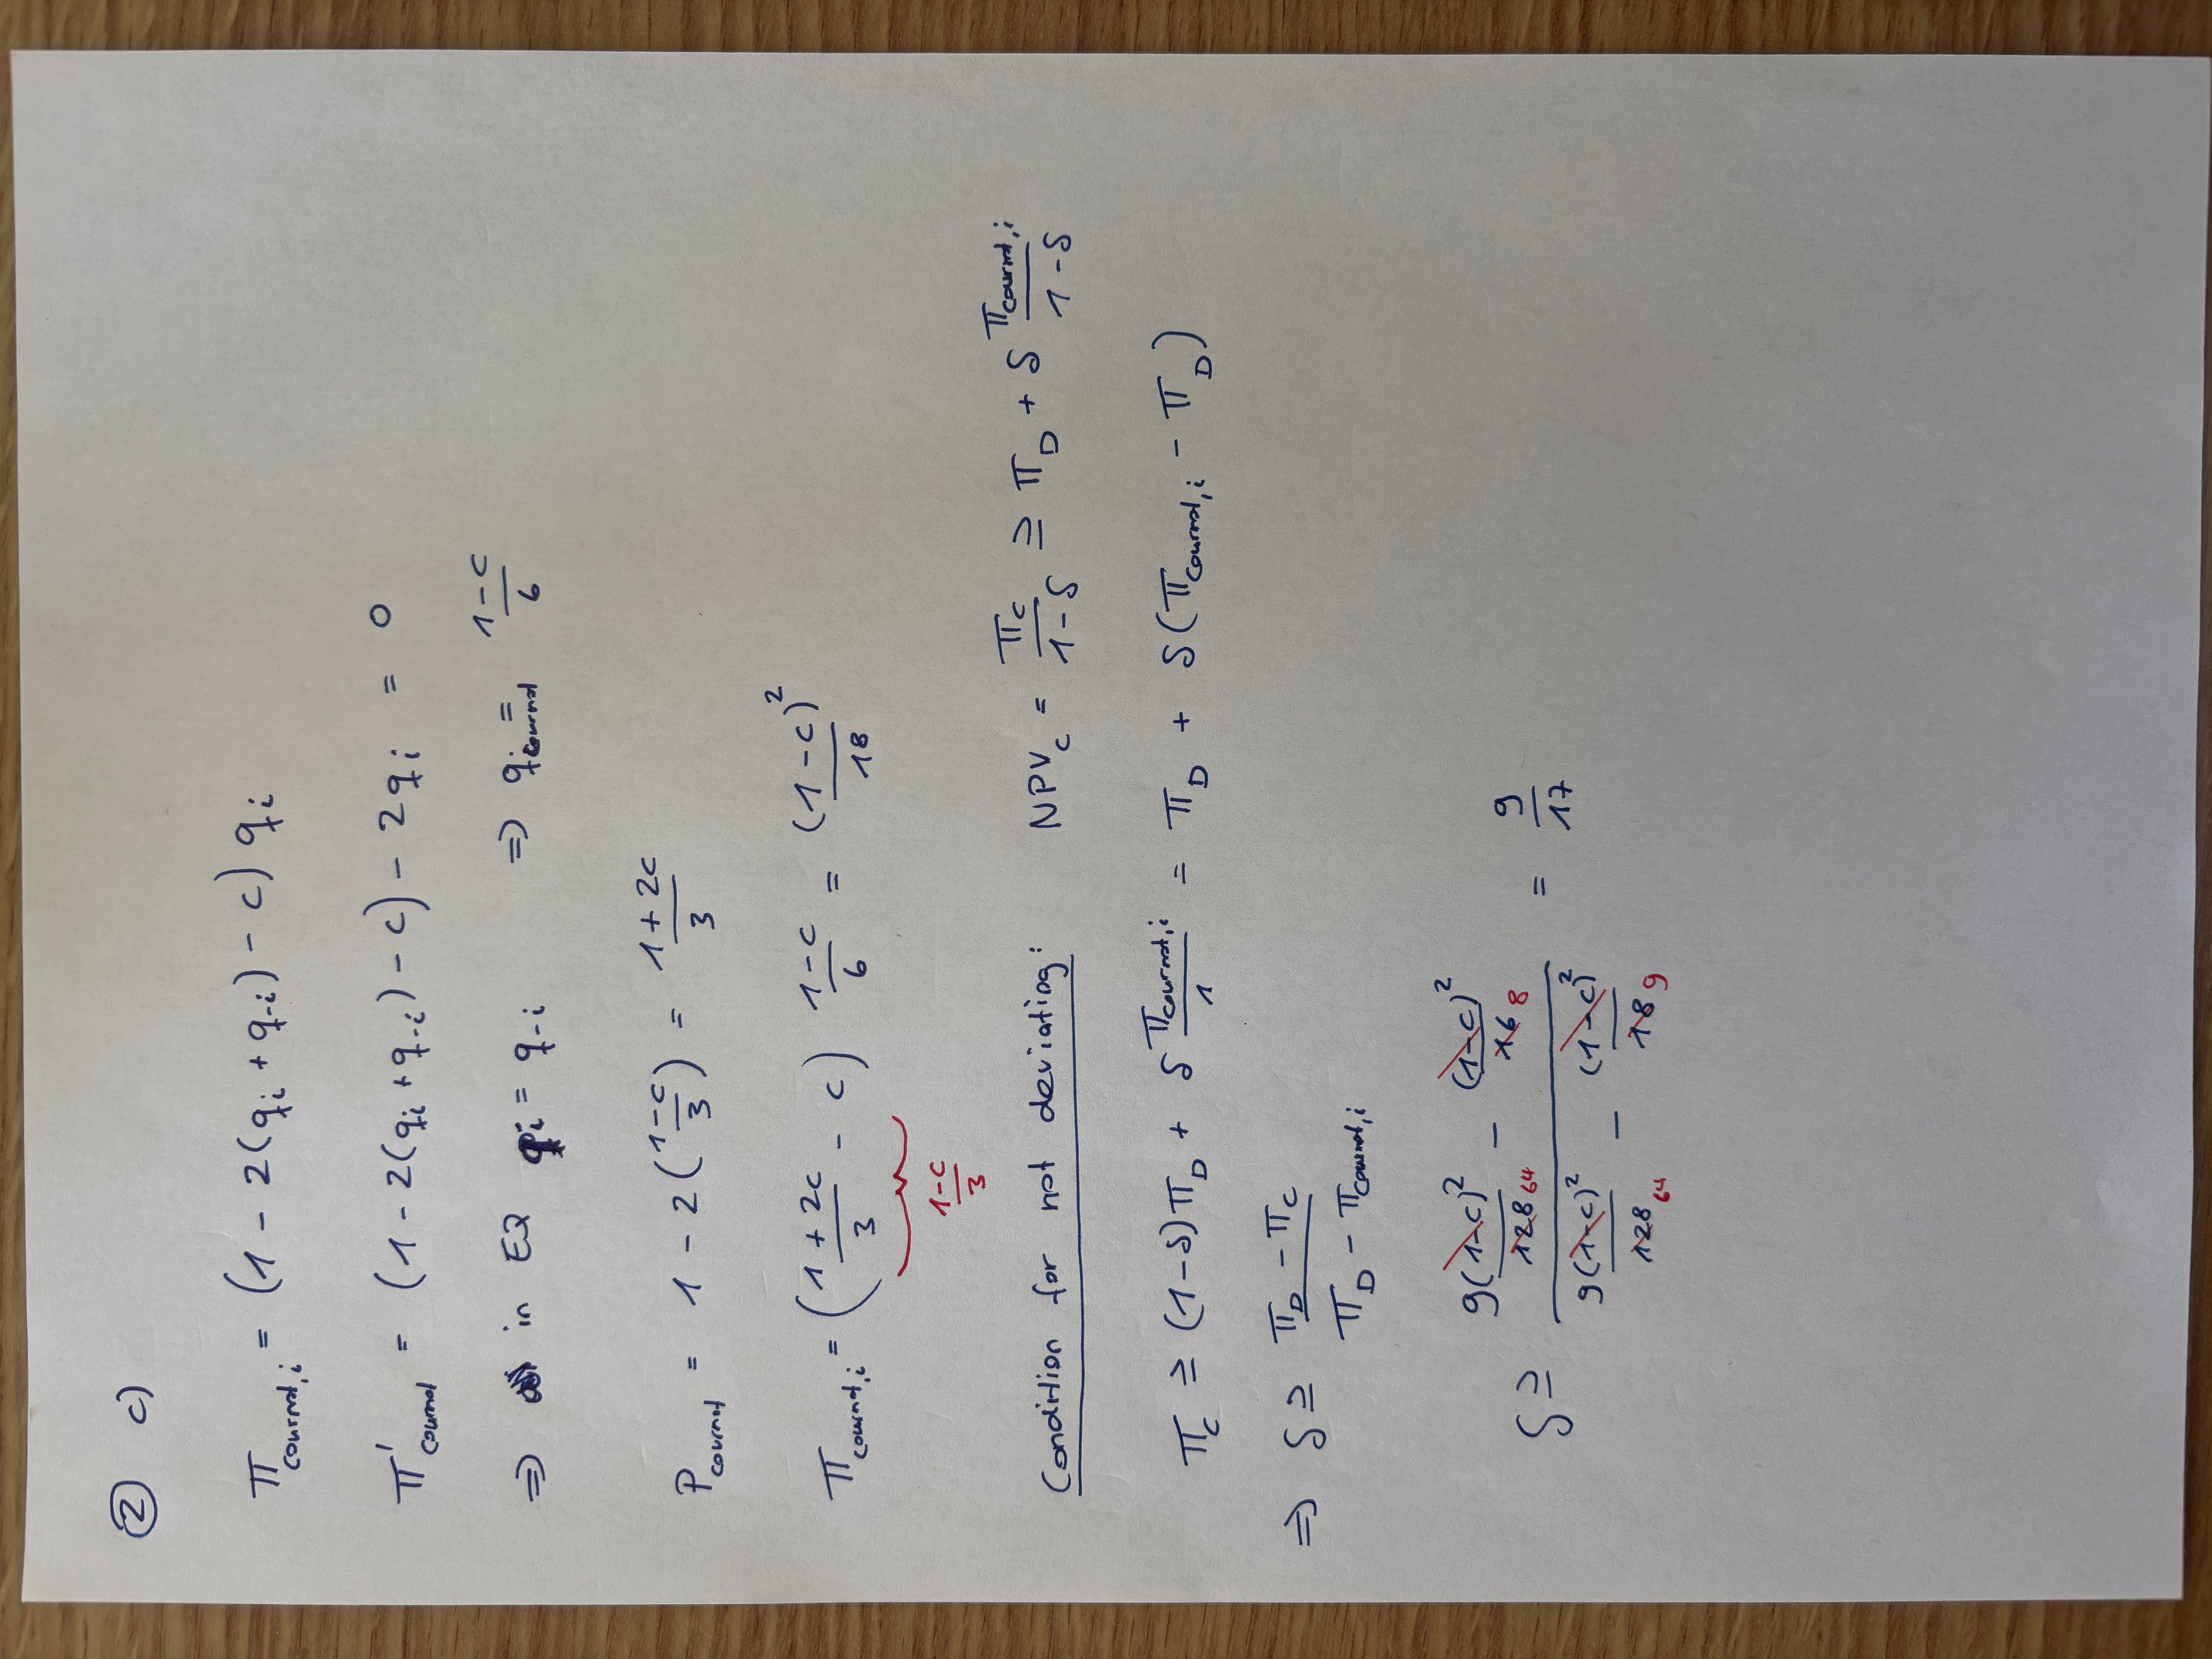 ② c)
π_cournot,i = (1 - 2(q_i + q_-i) - c) q_i
π'_cournot = (1 - 2(q_i + q_-i) - c) - 2q_i = 0
⇒ in EQ q_i = q_-i ⇒ q_i cournot = (1-c)/6
P_cournot = 1 - 2((1-c)/3) = (1+2c)/3
π_cournot,i = ((1+2c)/3 - c) (1-c)/6 = (1-c)²/18
(1-c)/3
Condition for not deviating: NPV_C = π_C/(1-δ) ≥ π_D + δ π_cournot,i/(1-δ)
π_C ≥ (1-δ)π_D + δ π_cournot,i/1 = π_D + δ(π_cournot,i - π_D)
⇒ δ ≥ (π_D - π_C)/(π_D - π_cournot,i)
δ ≥ (9(1-c)²/128 64 - (1-c)²/16 8)/(9(1-c)²/128 64 - (1-c)²/18 9) = 9/17